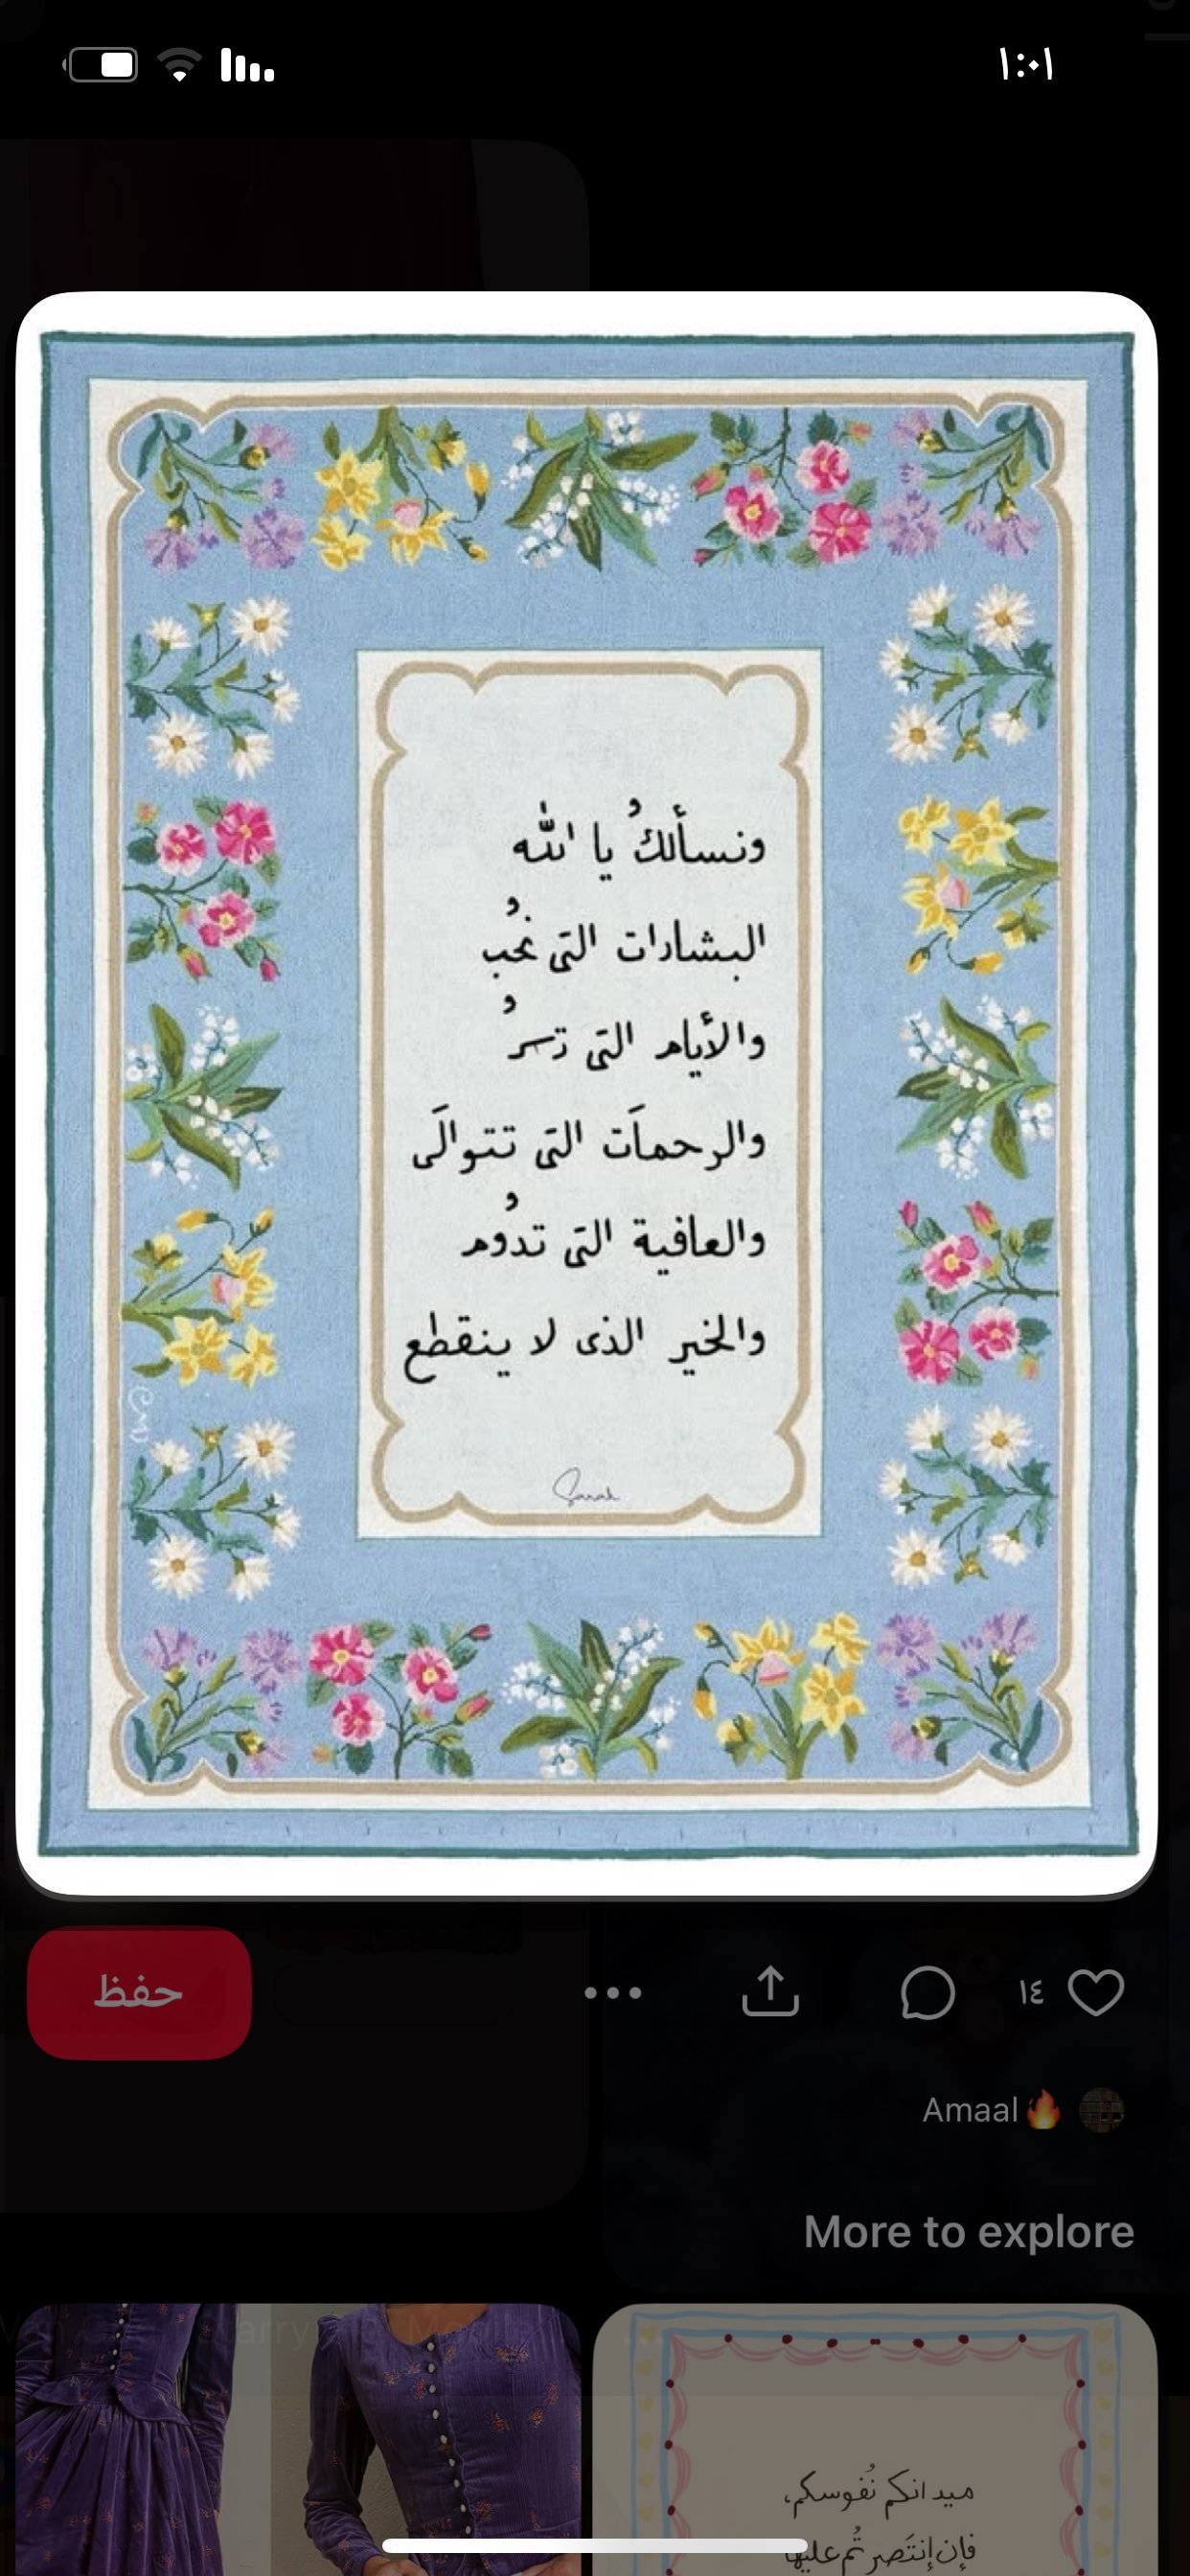 ١:٠١
ونسألكُ يا الله
البشارات التى نُحب
والأيام التى تسرُ
والرحمات التى تتوالَى
والعافية التى تدُوم
والخير الذى لا ينقطع
Sarah
حفظ
١٤
Amaal🔥
More to explore
ميدانكم نُفوسكم،
فإن إنتَصرتُم عليها